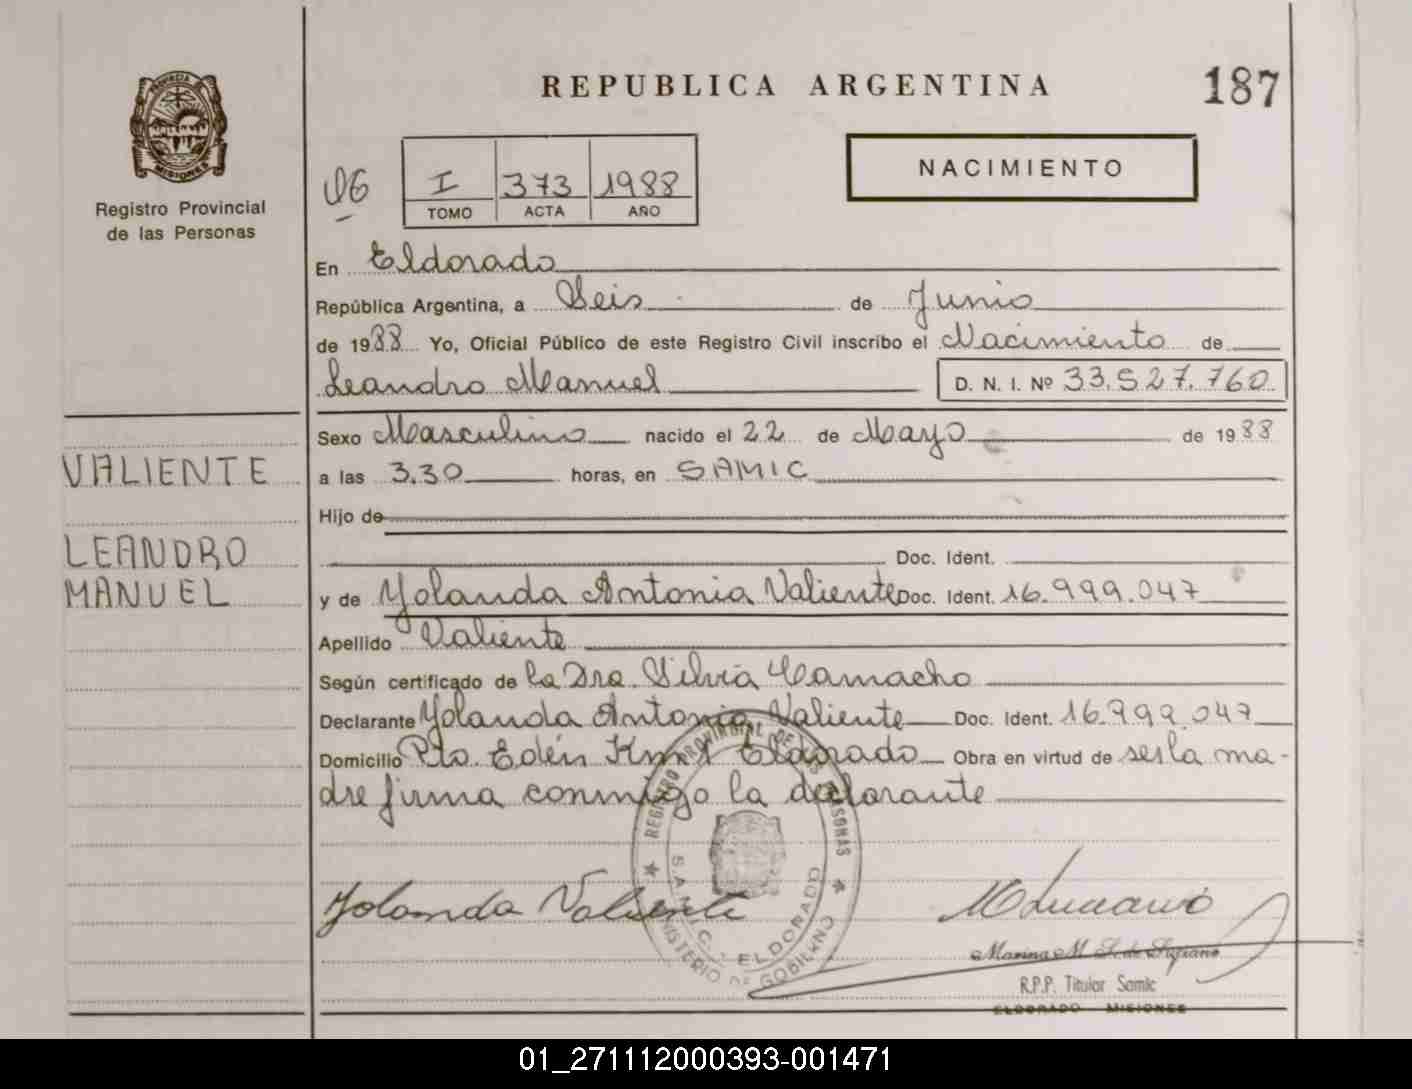 REPUBLICA ARGENTINA
187
PROVINCIA DE
MISIONES
Registro Provincial
de las Personas
NACIMIENTO
I 373 1988
TOMO ACTA AÑO
En Eldorado
República Argentina, a Seis de Junio
de 1988 Yo, Oficial Público de este Registro Civil inscribo el Nacimiento de
Leandro Manuel D. N. I. Nº 33.527.760
Sexo Masculino nacido el 22 de Mayo de 1988
VALIENTE
a las 3.30 horas, en SAMIC
Hijo de
LEANDRO
Doc. Ident.
MANUEL
y de Yolanda Antonia Valiente Doc. Ident. 16.999.047
Apellido Valiente
Según certificado de la Dra. Silvia Camacho
Declarante Yolanda Antonia Valiente Doc. Ident. 16.999.047
Domicilio Pto. Edén Km Eldorado Obra en virtud de ser la ma-
dre firma conmigo la declarante
REGISTRO PROVINCIAL DE LAS PERSONAS
S.A.M.I.C. ELDORADO
MINISTERIO DE GOBIERNO
Yolanda Valiente
Marina M. S. de
R.P.P. Titular Samic
ELDORADO MISIONES
01_271112000393-001471